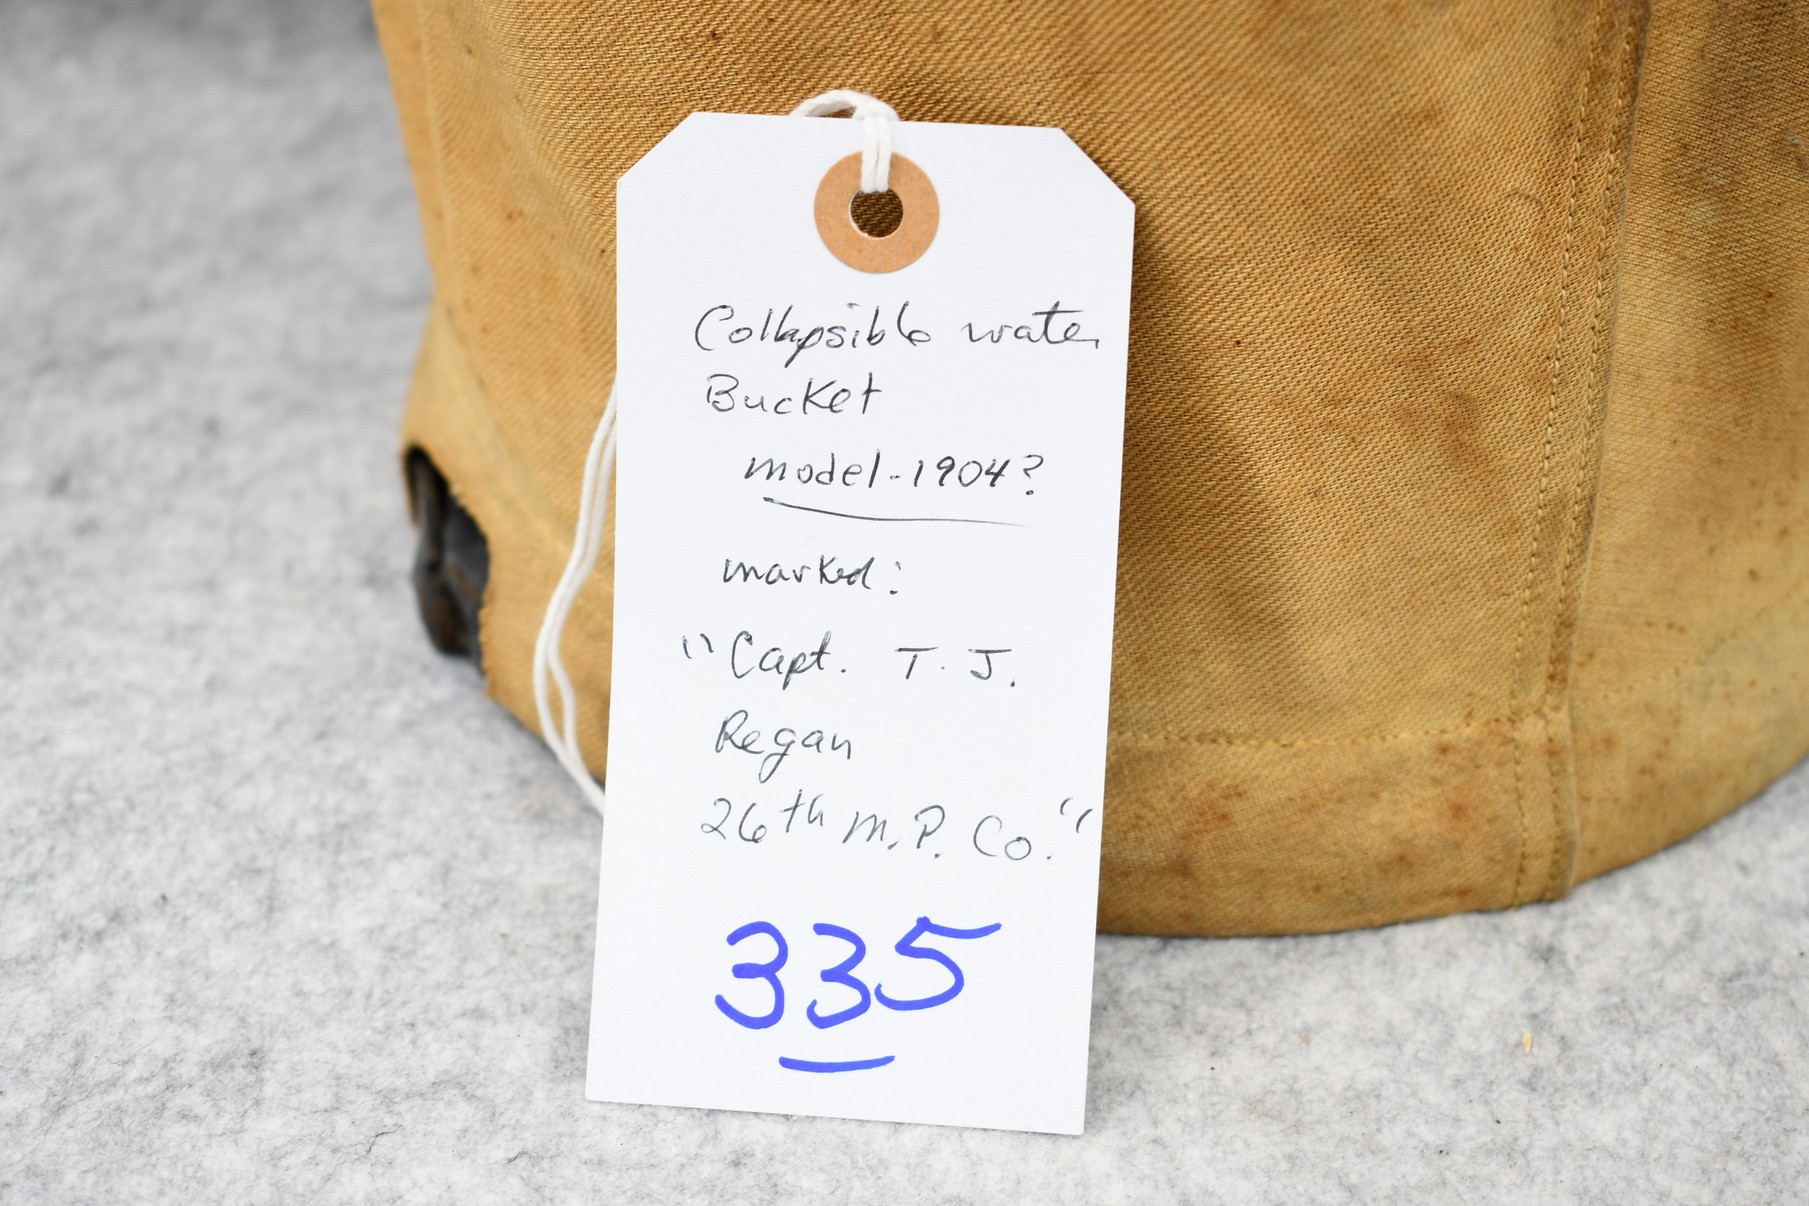 Collapsible water
Bucket
model-1904?
marked:
"Capt. T. J.
Regan
26th M.P. Co."
335